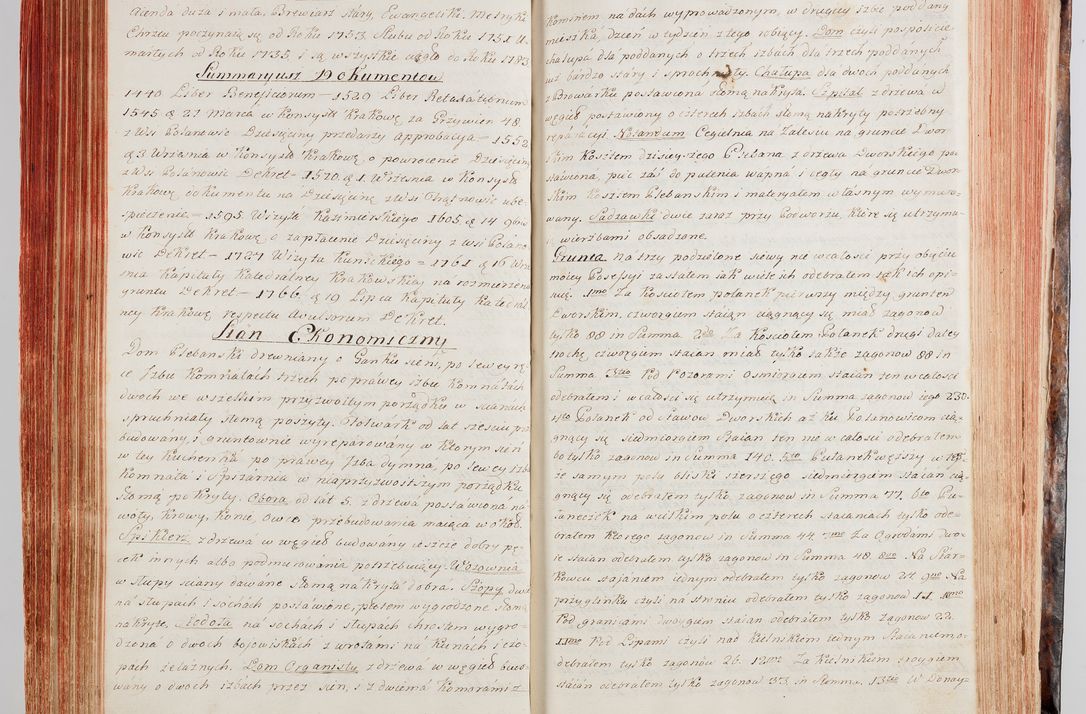 Acenda duża i mała, Brewiarz stáry, Ewangeliki. Metryki
Chrztu poczynaią się od Roku 1753 Slubu od Roku 1751 U-
marłych od Roku 1735. i są wszystkie ciągło do Roku 1783
Summaryusz Dokumentow
1440 Liber Beneficiorum — 1529 Liber Retaxationum
1545 d 27 Marca w Konsyst Krakowę za Grzywien 48
z Wsi Polanowic Dziesięciny przedarzy approbacya — 1552
d 3 Wrzesnia w Konsyst Krakowę o powrocenie Dziesięciny
z Wsi Polanowic Dekret — 1570 d 1. Wrzesnia w Konsyst
Krakowę dokumentu na Dziesięcinę z Wsi ube-
spieczenie — 1595 Wizyta Kazimirskiego 1605 d 14
w Konsyst Krakowę o zapłacenie Dziesięciny z wsi Polano-
wic Dekret — 1727 Wizyta Kunickiego = 1761 d 16 Wrze
snia Kapituły Katedralney Krakowskiey na rozmierzenie
gruntu Dekret — 1766 d 19 Lipca Kapituły Katedral
ney Krakowę respectu Avulsorum Dekret.
Stan Ekonomiczny
Dom Plebanski drewniany o Ganku sieni, po lewey rę-
ce Izbie Komnatach trzech po prawey Izbie Komnatach
dwoch we wszelkim przyzwoitym porządku w scianach
spruchniały słomą poszyty. Folwark od lat szesciu prze
budowany, i gruntownie wyreparowany w ktorym sień
w tey Kuchenka po prawey Izba dymna, po lewey Izba
Komnata i Spizarnia w nayprzyzwoitszym porządku
słomą pokryty. Obora od lat 5. z drzewa postawiona na
woły, Krowy, Konie, owce przebudowania maiąca w około.
Spiklerz z drzewa w węgieł budowany ieszcze dobry pę-
cek innych albo podmurowania potrzebuiący. Wozownia
w słupy sciany dawane słomą nakryta dobra. Szopy dwie
na słupach i sochach postawione, płotem wygrodzone słomą
nakryte. Stodoła na sochach i słupach chrostem wygro-
dzona o dwoch bojowiskach z wrotami na kunach i czo-
pach żelaznych. Dom Organisty z drzewa w węgieł budo
wany o dwoch izbach przez sień, i z dwiema Komorami z
Kominem na dach wyprowadzonym, w drugiey Izbie poddany
mieszka, dzień w tydzień z tego robiący. Dom czyli pospolicie
chałupa dla poddanych o trzech izbach dla trzech poddanych
iuż bardzo stary i sprochniały. Chałupa dla dwoch poddanych
z Browarku postawiona słomą nakryta. Szpital z drzewa w
węgieł postawiony o czterech izbach słomą nakryty potrzebny
reparacyi. Notandum Cegielnia na Zalesiu na gruncie Dwor
skim Kosztem dzisieyszego Plebana z drzewa Dworskiego po-
stawiona, piec zaś do palenia wapna i cegły na gruncie Dwor
skim Kosztem Plebanskim i materyałem własnym wymuro-
wany. Sadzawki dwie zaraz przy Podworzu, które się utrzymu-
ią wierzbami obsadzone.
Grunta na trzy podzielone siewy nie wcałości przy obięciu
moiey Possessyi zastałem iak wiele ich odebrałem tak ich opi-
suię. 1mo Za Kosciołem polanek pierwszy między gruntem
Dworskim, czworgiem staian ciągnący się miał zagonow
tylko 88 in Summa. 2do Za Kosciołem Polanek drugi daley
trochę czworgiem staian miał tylko także zagonow 88 in
Summa. 3tio Pod Rozorami Osmiorgiem staian ten wcałości
odebrałem i wcałości się utrzymuię in Summa zagonow iego 230.
4to Polanek od stawow Dworskich aż ku Polanowicom cią-
gnący się siedmiorgiem Staian ten nie w całości odebrałem
bo tylko zagonow in Summa 140. 5to Pulanek węższy w
że samym polu bliski szerszego siedmiorgiem staian cią-
gnący się odebrałem tylko zagonow in Summa 77. 6to Pu-
laneczek na wielkim polu o czterech staianach tylko ode-
brałem ktorego zagonow in Summa 44. 7mo Za Ogrodami dwo-
ie staian odebrałem tylko zagonow in Summa 48. 8vo Na Star-
kowcu stajaniem iednym odebrałem tylko zagonow 27. 9no Na
przyglinku czyli na stroniu odebrałem tylko zagonow 11. 10mo
Pod granicami dwoygiem staian odebrałem tylko zagonow 22.
11mo Pod Lipami czyli nad iednym Staianiem o-
debrałem tylko zagonow 26. 12mo Za troygiem
staian odebrałem tylko zagonow 33 in Summa. 13tio W Dunay-